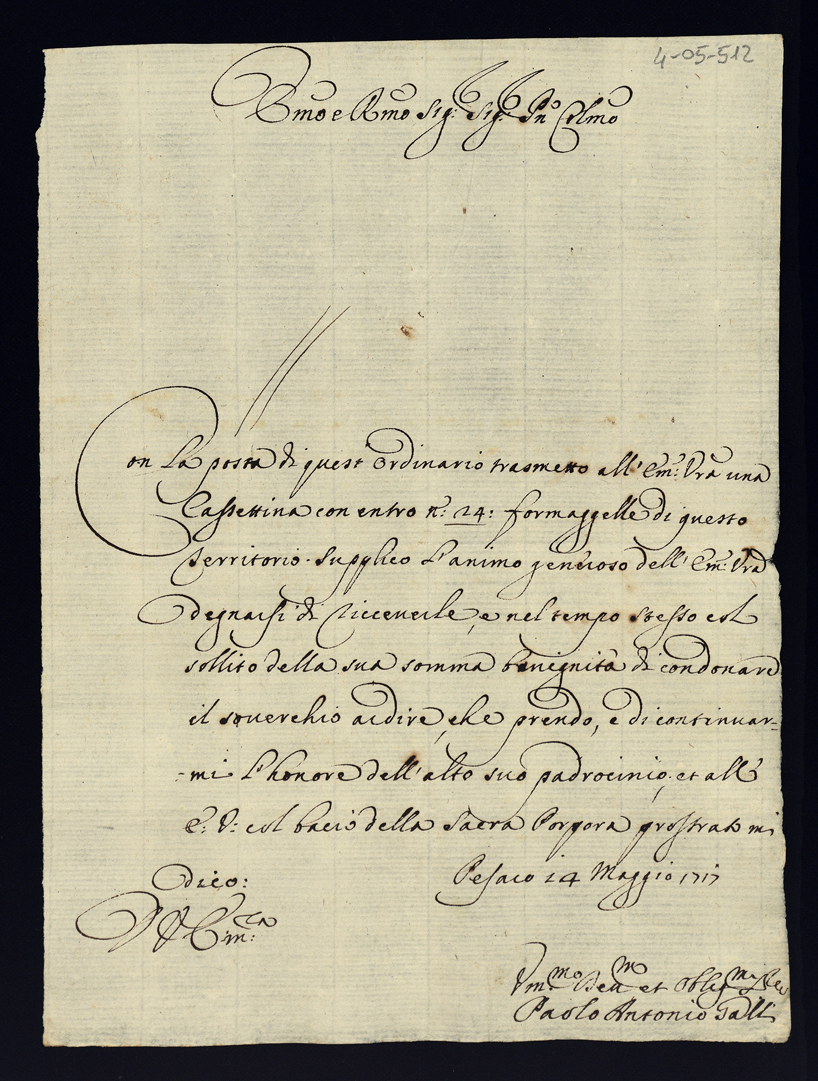 4-05-512
Emo e Rmo Sig:r Sig:r Pn Colmo
Con La posta di quest Ordinario trasmetto all' Em: Vra una
Cassettina con entro n: 24: formaggelle di questo
Territorio. Supplico L'animo generoso dell' Em: Vra
degnarsi di riceverle, e nel tempo stesso col
sollito della sua somma benignità di condonare
il soverchio ardire, che prendo, e di continuar-
-mi L'honore dell'alto suo padrocinio; et all'
E: V: col bacio della Sacra Porpora prostrato mi
dico:
Pesaro 14 Maggio 1717
D V Em:za
Vm:mo Dev:mo et Oblig:mo
Paolo Antonio Galli